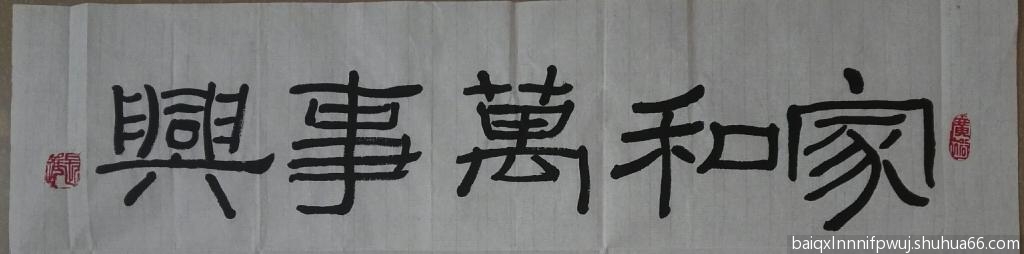 家和萬事興
baiqxlnnnifpwuj.shuhua66.com